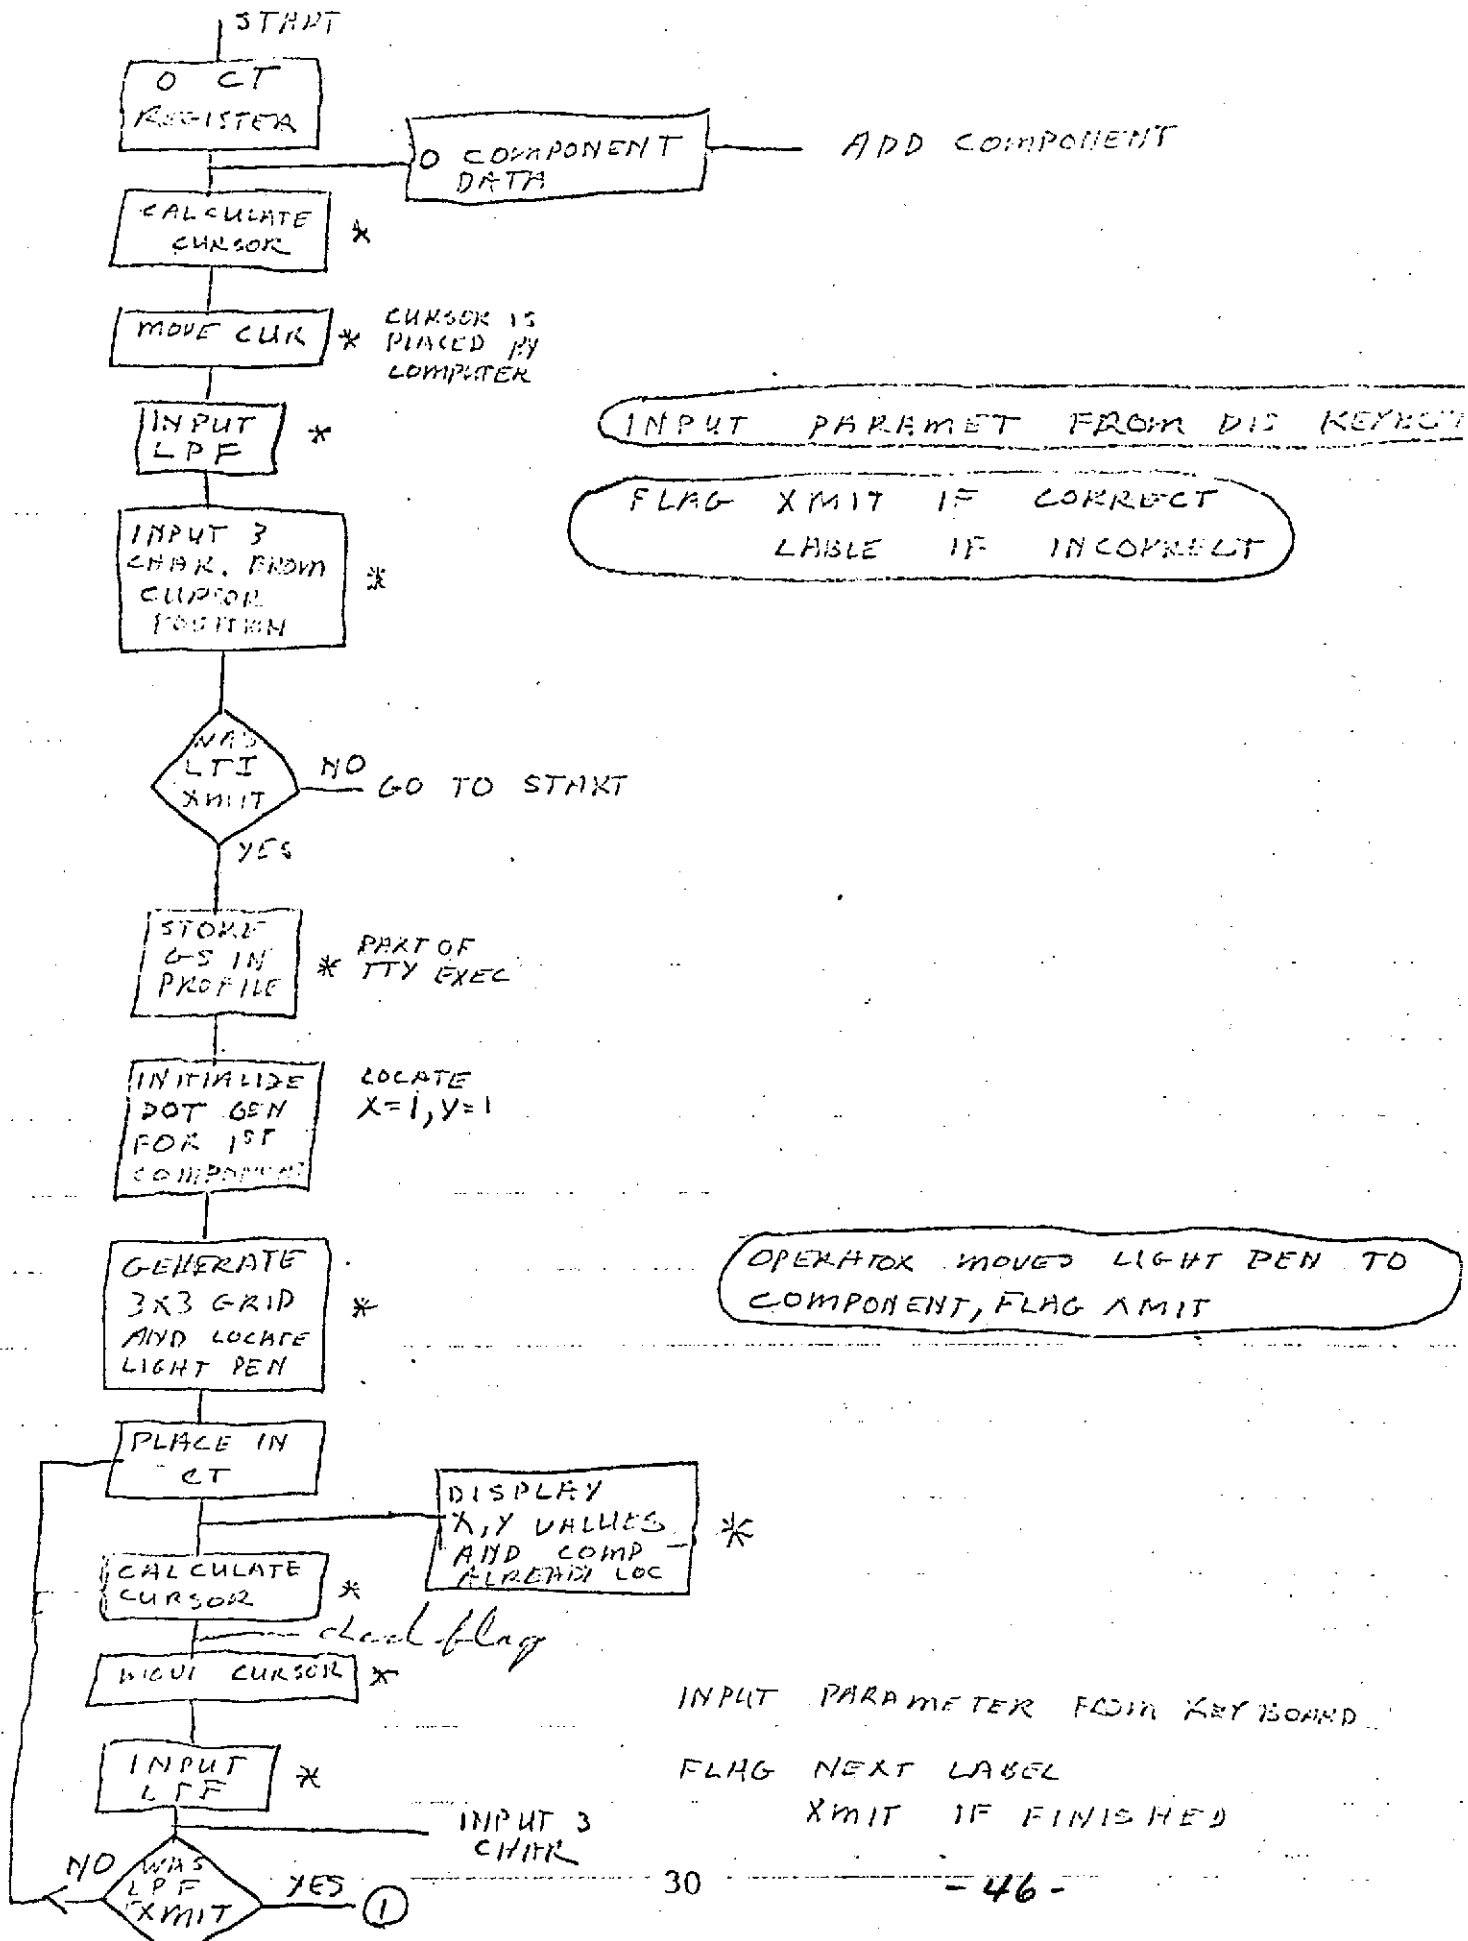 START
O CT
REGISTER
O COMPONENT
DATA
ADD COMPONENT
CALCULATE
CURSOR
*
MOVE CUR
*
CURSOR IS
PLACED BY
COMPUTER
INPUT
LPF
*
INPUT PARAMET FROM DIS
FLAG XMIT IF CORRECT
LABLE IF INCORRECT
INPUT 3
CHAR. FROM
CURSOR
POSITION
*
WAS
LTI
XMIT
NO
GO TO START
YES
STORE
GS IN
PROFILE
*
PART OF
TTY EXEC
INITIALIZE
DOT GEN
FOR 1ST
COMPONENT
LOCATE
X=1, Y=1
GENERATE
3X3 GRID
AND LOCATE
LIGHT PEN
*
OPERATOR MOVES LIGHT PEN TO
COMPONENT, FLAG XMIT
PLACE IN
CT
DISPLAY
X, Y VALUES
AND COMP
ALREADY LOC
*
CALCULATE
CURSOR
*
flag
CURSOR
*
INPUT PARAMETER FROM KEYBOARD
INPUT
LPF
*
FLAG NEXT LABEL
XMIT IF FINISHED
INPUT 3
CHAR
NO
WAS
LPF
XMIT
YES
1
30
- 46 -